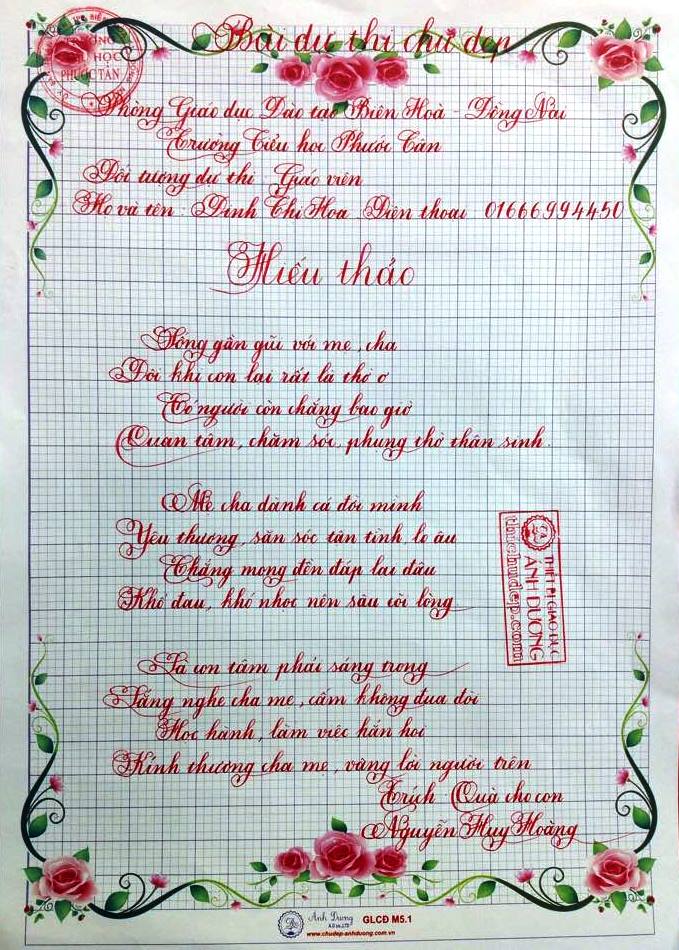 Bài dự thi chữ đẹp
Phòng Giáo dục Đào tạo Biên Hoà - Đồng Nai
Trường Tiểu học Phước Tân
Đối tượng dự thi Giáo viên
Họ và tên : Đinh Thị Hoa Điện thoại 01666994450
Hiếu thảo
Sống gần gũi với mẹ, cha
Đôi khi con lại rất là thờ ơ
Có người còn chẳng bao giờ
Quan tâm, chăm sóc, phụng thờ thân sinh.
Mẹ cha dành cả đời mình
Yêu thương, săn sóc tận tình lo âu
Chẳng mong đền đáp lại đâu
Khổ đau, khó nhọc nén sâu cõi lòng
Là con tâm phải sáng trong
Lắng nghe cha mẹ, cấm không đua đòi
Học hành, làm việc hẳn hoi
Kính thương cha mẹ, vâng lời người trên
Trích Quà cho con
Nguyễn Huy Hoàng
THIẾT BỊ GIÁO DỤC
ÁNH DƯƠNG
thuchudep.com
TIỂU HỌC
PHƯỚC TÂN
Anh Dương
GLCĐ M5.1
www.chudep-anhduong.com.vn